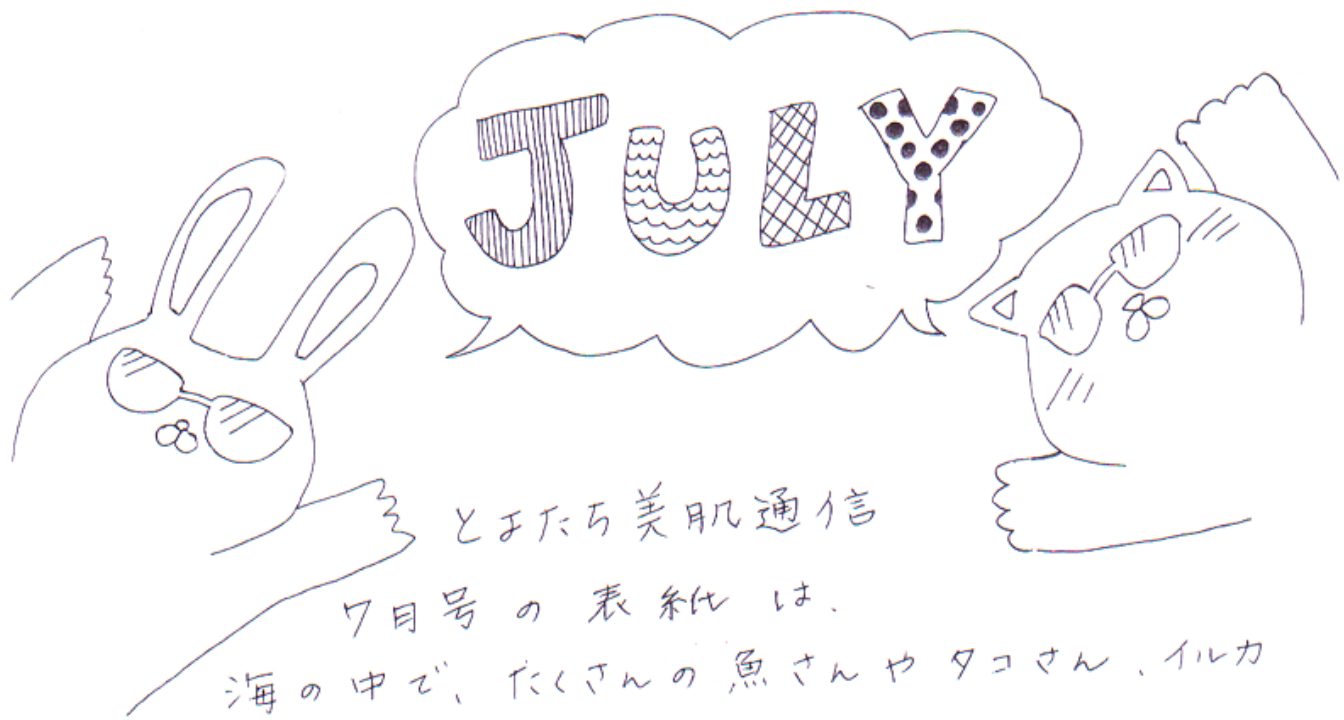 JULY
とよたち美肌通信
7月号の表紙は、
海の中で、たくさんの魚さんやタコさん、イルカ